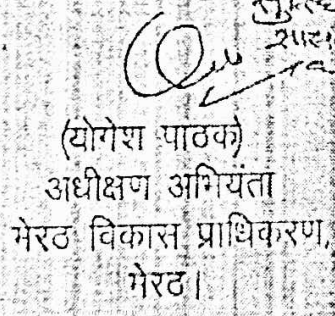 (योगेश पाठक)
अधीक्षण अभियंता
मेरठ विकास प्राधिकरण,
मेरठ।